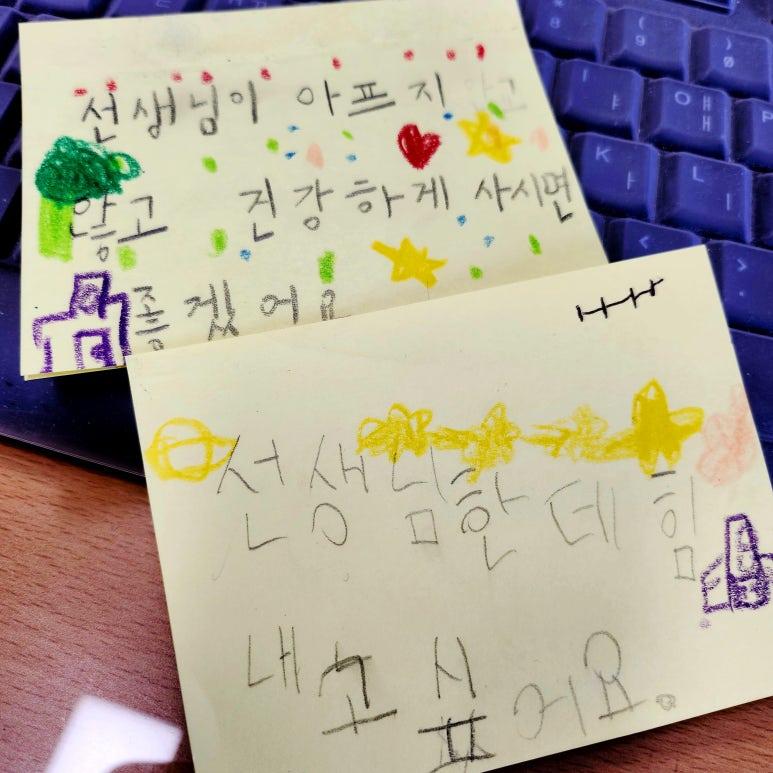 선생님이 아프지
않고 건강하게 사시면
좋겠어요
선생님한테 힘
내고 싶어요.
( 9
) 0
I ㅑ
O ㅒ ㅐ
P
K ㅏ
L ㅣ
<
>